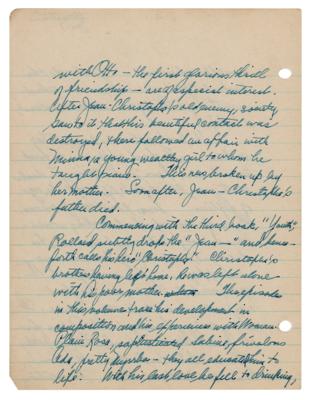 with Otto — the first glorious thrill
of friendship — are of especial interest.
After Jean-Christophe's old enemy, society
saw to it that this beautiful contact was
destroyed, there followed an affair with
Minna, a young wealthy girl to whom he
taught piano. This was broken up by
her mother. Soon after, Jean-Christophe's
father died.
Commencing with the third book, "Youth",
Rolland subtly drops the "Jean —" and hence-
forth calls his hero "Christophe". Christophe's
brothers having left home, he was left alone
with his poor mother. The episodes
in this volume trace his development in
composition and his experiences with Women.
Plain Rosa, sophisticated Sabine, frivolous
Ada, pretty — they all educate him to
life. With his last love, he fell to drinking,